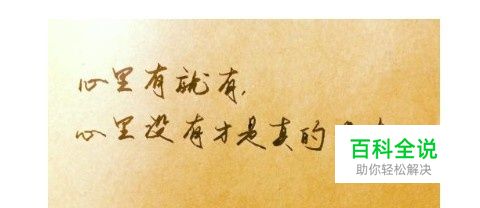 心里有就有,
心里没有才是真的
百科全说
助你轻松解决